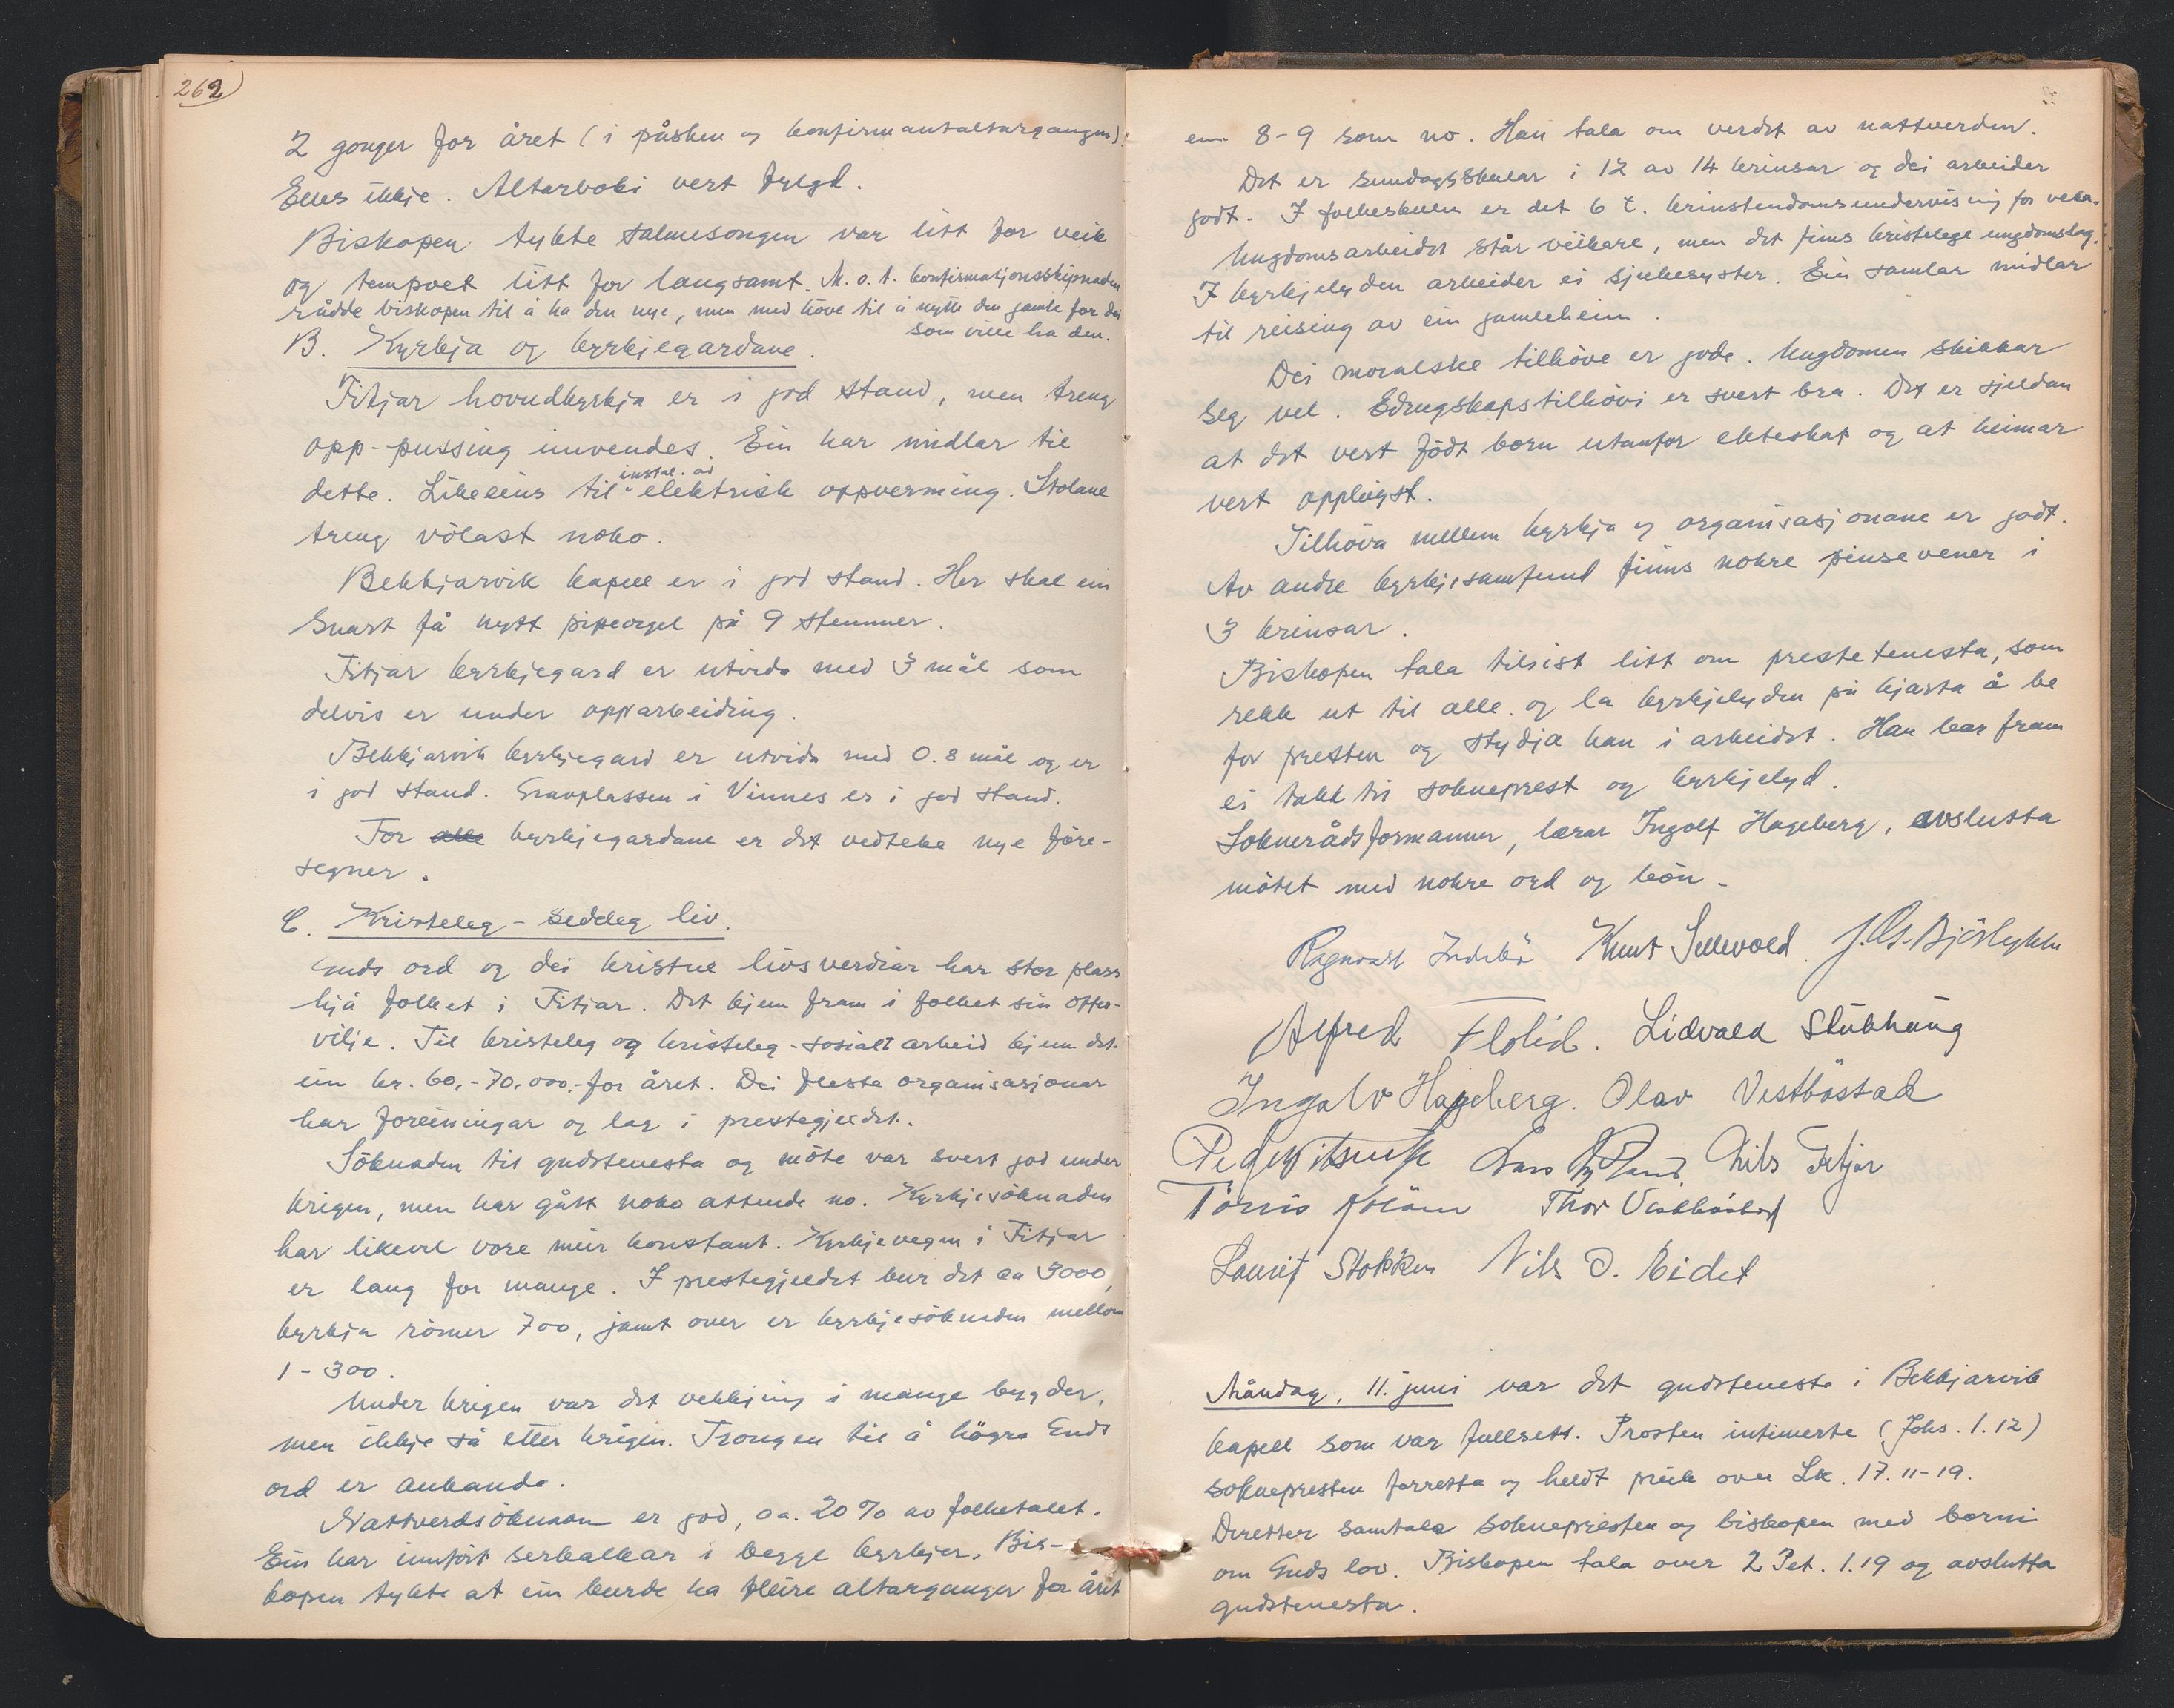 262
2 gonger for året (i påsken og konfirmantaltargangen).
Elles ikkje. Altarboki vert fylgd.
Biskopen tykte salmesongen var litt for veik
og tempoet litt for langsamt. M.o.t. konfirmasjonsskipnaden
rådde biskopen til å ha den nye, men med höve til å nytte den gamle for dei
som ville ha den.
B. Kyrkja og kyrkjegardane.
Fitjar hovudkyrkja er i god stand, men treng
opp-pussing innvendes. Ein har midlar til
dette. Likeeins til instal. av elektrisk oppverming. Stolane
treng völast noko.
Bekkjarvik kapell er i god stand. Her skal ein
snart få nytt pipeorgel på 9 stemmer.
Fitjar kyrkjegard er utvida med 3 mål som
delvis er under opparbeiding.
Bekkjarvik kyrkjegard er utvida med 0.8 mål og er
i god stand. Gravplassen i Vinnes er i god stand.
For alle kyrkjegardane er det vedteke nye före-
segner.
C. Kristeleg-seddeg liv.
Guds ord og dei kristne livsverdiar har stor plass
hjå folket i Fitjar. Det kjem fram i folket sin offer-
vilje. Til kristeleg og kristeleg-sosialt arbeid kjem det
inn kr. 60,-70.000,- for året. Dei fleste organisasjonar
har foreiningar og lag i prestegjeldet.
Söknaden til gudstenesta og möte var svert god under
krigen, men har gått noko attende no. Kyrkjesöknaden
har likevel vore meir konstant. Kyrkjevegen i Fitjar
er lang for mange. I prestegjeldet bur det ca 3000,
kyrkja römer 700, jamt over er kyrkjesöknaden mellom
1-300.
Under krigen var det vekkjing i mange bygder,
men ikkje så etter krigen. Trongen til å högra Guds
ord er ankande.
Nattverdsöknaen er god, ca. 20% av folketalet.
Ein har innfört serkalkar i begge kyrkjer. Bis-
kopen tykte at ein burde ha fleire altarganger for året
enn 8-9 som no. Han tala om verdet av nattverden.
Det er sundagsskular i 12 av 14 krinsar og dei arbeider
godt. I folkeskulen er det 6 t. kristendomsundervising for veka.
Ungdomsarbeidet står veikare, men det finns kristelege ungdomslag.
I kyrkjelyden arbeider ei sjukesyster. Ein samlar midlar
til reising av ein gamleheim.
Dei moralske tilhöve er gode. Ungdomen skikkar
seg vel. Edrugskapstilhövi er svert bra. Det er sjeldan
at det vert födt born utanfor ekteskap og at heimar
vert opplöyst.
Tilhöva mellom kyrkja og organisasjonane er godt.
Av andre kyrkjesamfund finns nokre pinsevener i
3 krinsar.
Biskopen tala tilsist litt om prestetenesta, som
rekk ut til alle og la kyrkjelyden på hjarta å be
for presten og stydja han i arbeidet. Han bar fram
ei takk til sokneprest og kyrkjelyd.
Sokneråds formannen, lærar Ingolf Hageberg, avslutta
mötet med nokre ord og bön.
Ragnvald Indebö Knut Sellevold.
Alfred Flolid. Lidvald Stubhaug
Ingolv Hageberg. Olav Vestböstad
Nils Fitjar
Thor Vestböstad
Laurits Stokken Nils O. Eidet
Måndag, 11. juni var det gudsteneste i Bekkjarvik
kapell som var fullsett. Prosten intimerte (Johs. 1.12)
soknepresten forretta og heldt preik over Lk. 17. 11-19.
Deretter samtala soknepresten og biskopen med borni
om Guds lov. Biskopen tala over 2. Pet. 1.19 og avslutta
gudstenesta.